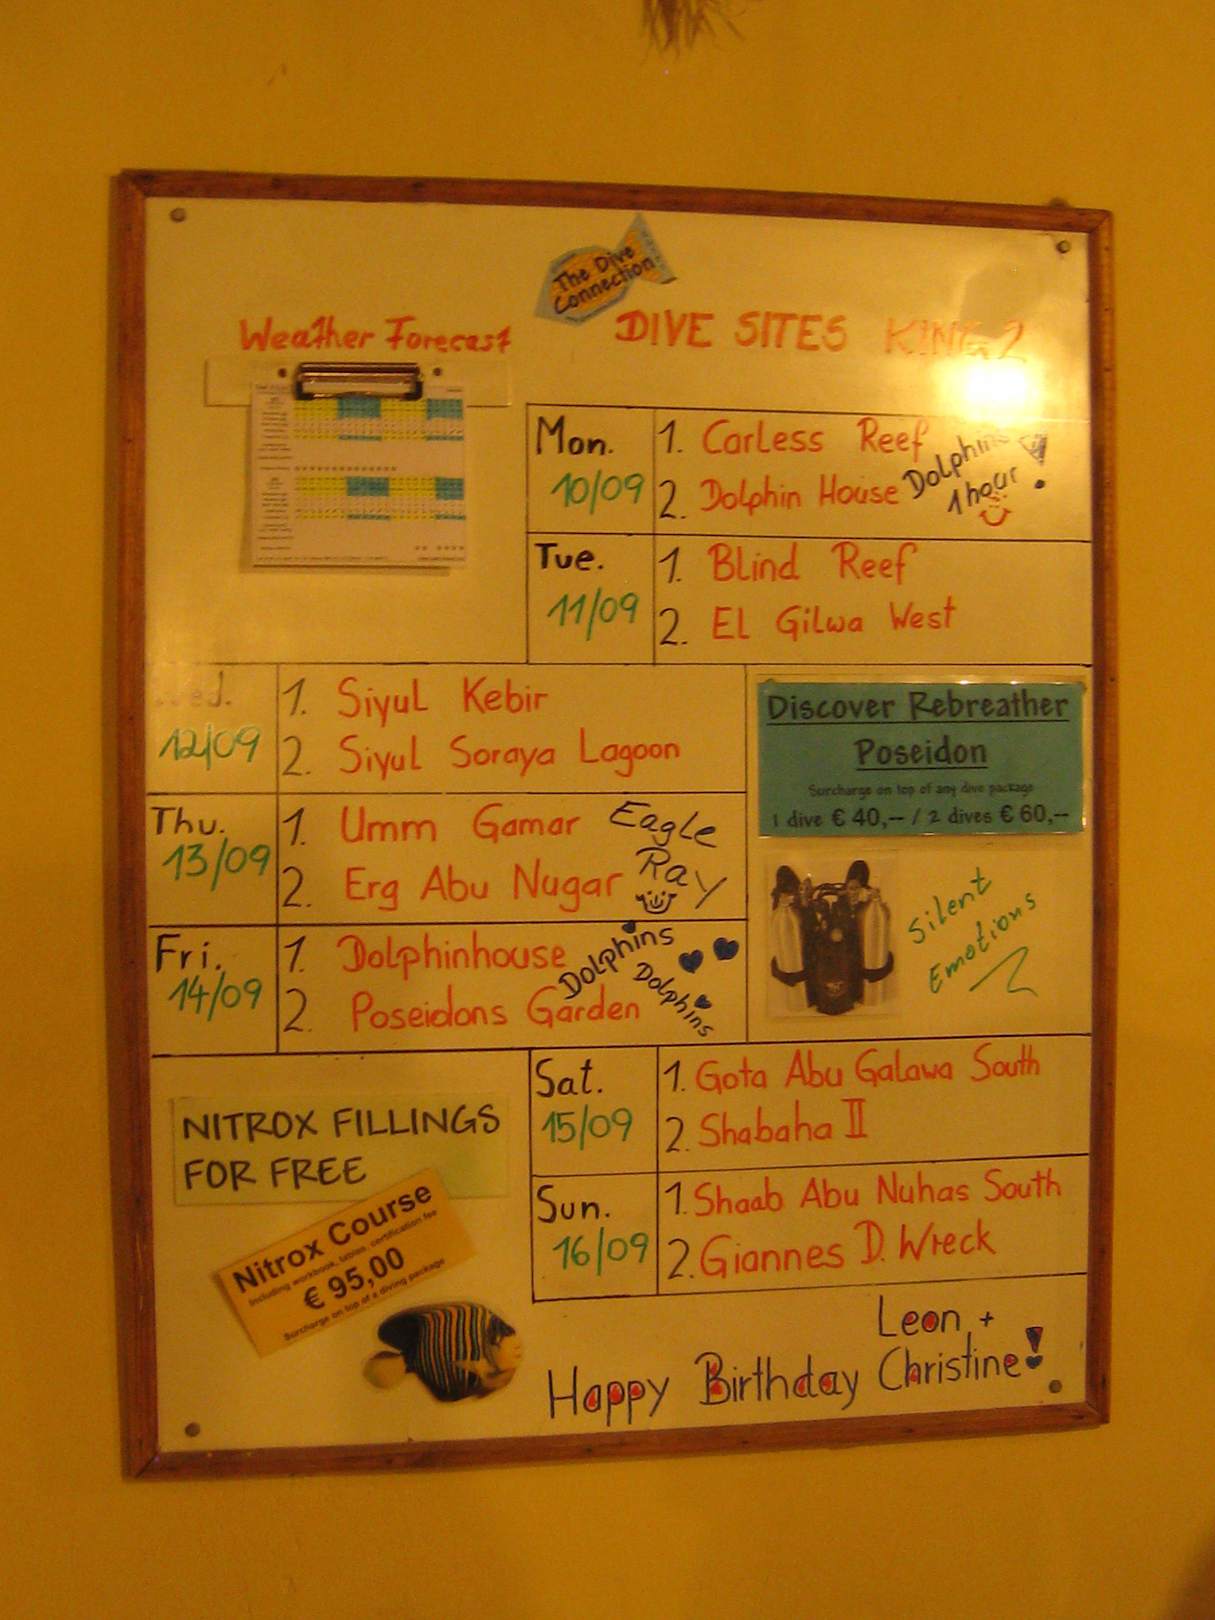 The Dive
Connection
Weather Forecast
DIVE SITES KING 2
Mon.
10/09
1. Carless Reef
2. Dolphin House
Dolphins
1 hour!
Tue.
11/09
1. Blind Reef
2. El Gilwa West
Wed.
12/09
1. Siyul Kebir
2. Siyul Soraya Lagoon
Discover Rebreather
Poseidon
Surcharge on top of any dive package
1 dive € 40,-- / 2 dives € 60,--
Thu.
13/09
1. Umm Gamar
2. Erg Abu Nugar
Eagle
Ray
Silent
Emotions
Fri.
14/09
1. Dolphinhouse
2. Poseidons Garden
Dolphins
Dolphins
Sat.
15/09
1. Gota Abu Galawa South
2. Shabaha II
NITROX FILLINGS
FOR FREE
Sun.
16/09
1. Shaab Abu Nuhas South
2. Giannes D. Wreck
Nitrox Course
Including workbook, tables, certification fee
€ 95,00
Surcharge on top of a diving package
Happy Birthday Leon +
Christine!